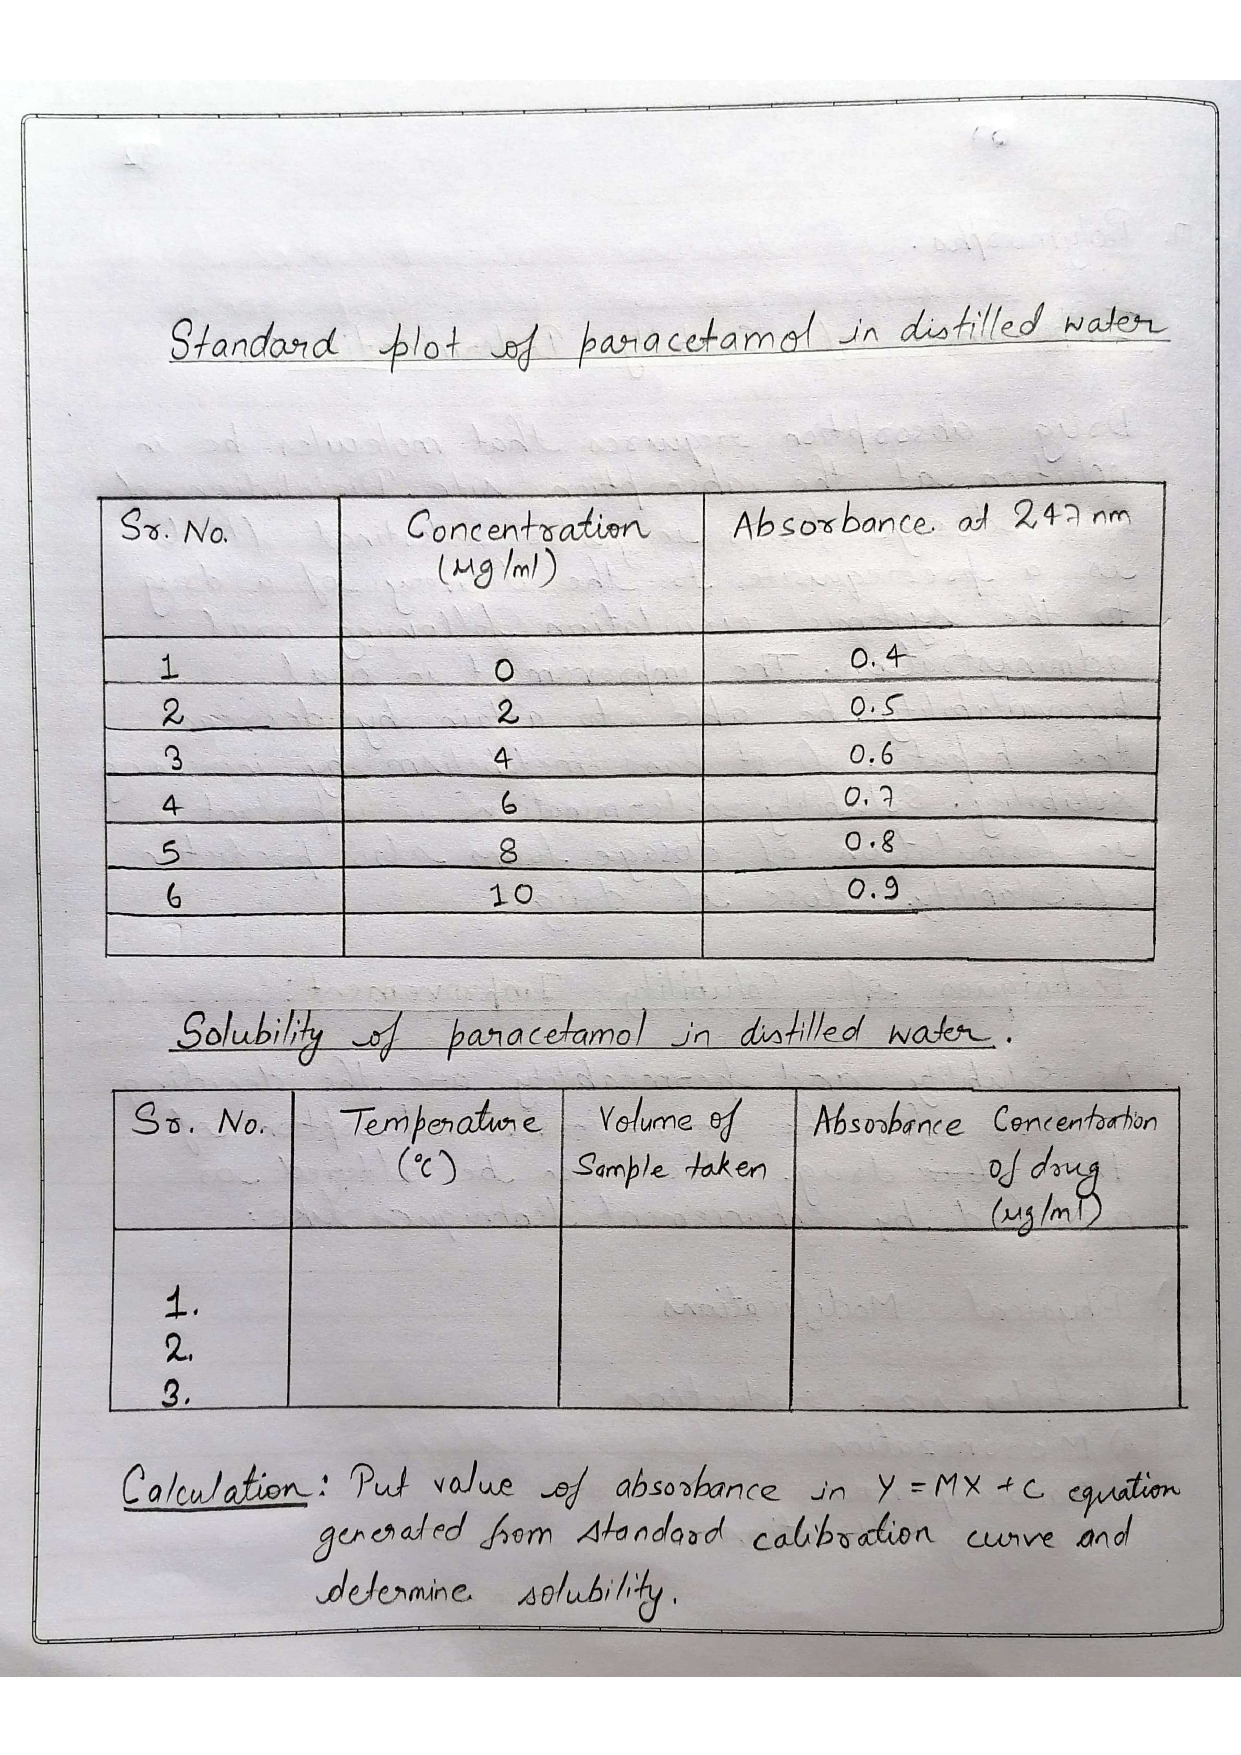 Standard plot of paracetamol in distilled water
Sr. No. Concentration (μg/ml) Absorbance at 247 nm
1 0 0.4
2 2 0.5
3 4 0.6
4 6 0.7
5 8 0.8
6 10 0.9
Solubility of paracetamol in distilled water.
Sr. No. Temperature (°C) Volume of Sample taken Absorbance Concentration of drug (μg/ml)
1.
2.
3.
Calculation: Put value of absorbance in Y = MX + C equation
generated from standard calibration curve and
determine solubility.